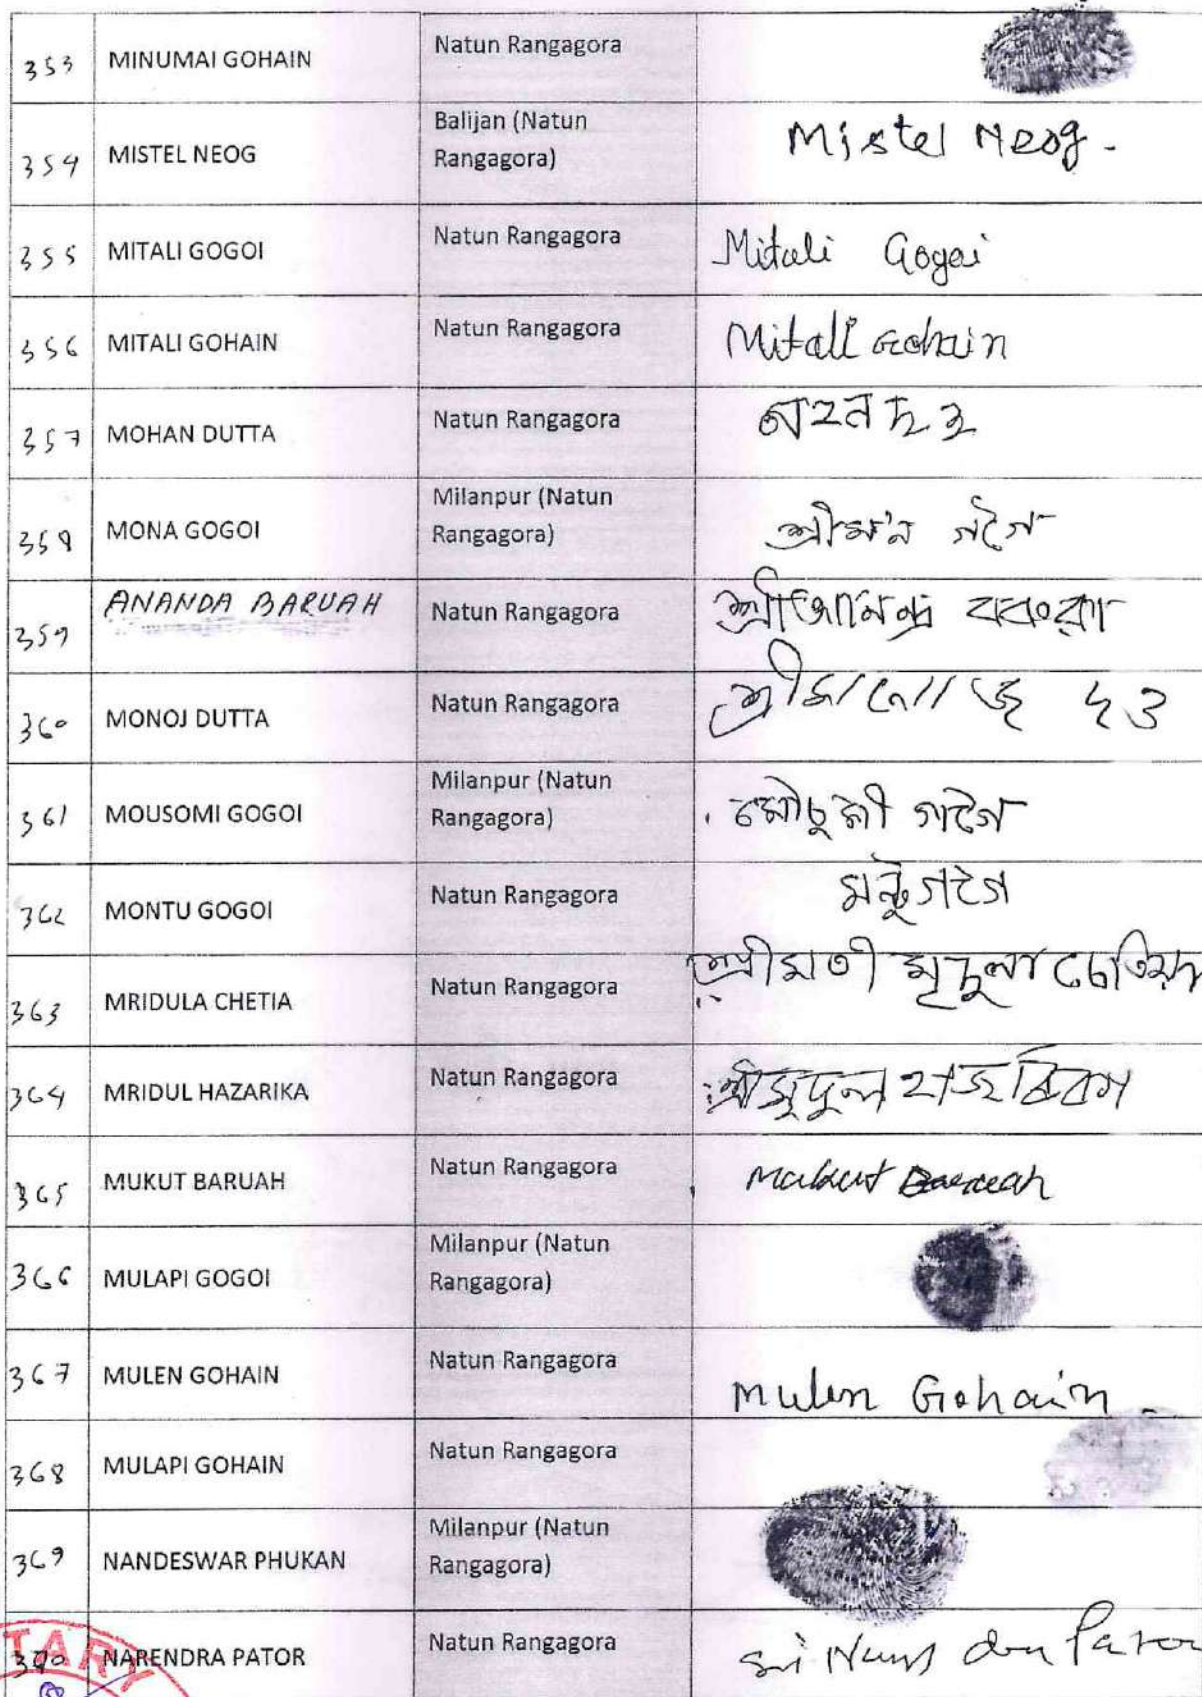 353 MINUMAI GOHAIN Natun Rangagora
354 MISTEL NEOG Balijan (Natun Rangagora) Mistel Neog.
355 MITALI GOGOI Natun Rangagora Mitali Gogoi
356 MITALI GOHAIN Natun Rangagora Mitali Gohain
357 MOHAN DUTTA Natun Rangagora
358 MONA GOGOI Milanpur (Natun Rangagora) শ্ৰীম'ন গগৈ
359 ANANDA BARUAH Natun Rangagora শ্ৰীআনন্দ বৰুৱা
360 MONOJ DUTTA Natun Rangagora শ্ৰীমনোজ দত্ত
361 MOUSOMI GOGOI Milanpur (Natun Rangagora) মৌচুমী গগৈ
362 MONTU GOGOI Natun Rangagora মন্টু গগৈ
363 MRIDULA CHETIA Natun Rangagora শ্ৰীমতী মৃদুলা চেতিয়া
364 MRIDUL HAZARIKA Natun Rangagora শ্ৰীমৃদুল হাজৰিকা
365 MUKUT BARUAH Natun Rangagora Mukut Baruah
366 MULAPI GOGOI Milanpur (Natun Rangagora)
367 MULEN GOHAIN Natun Rangagora Mulen Gohain
368 MULAPI GOHAIN Natun Rangagora
369 NANDESWAR PHUKAN Milanpur (Natun Rangagora)
370 NARENDRA PATOR Natun Rangagora Pator
TARY